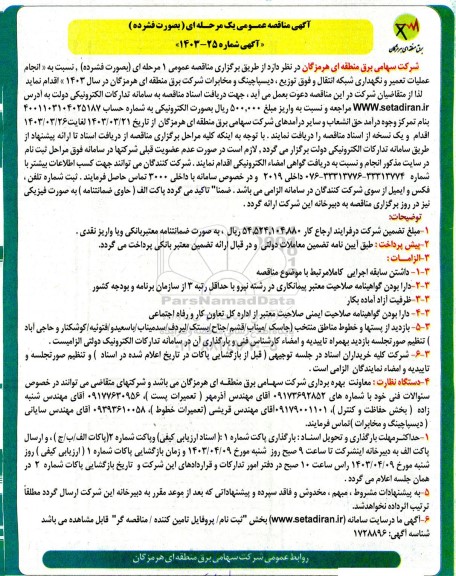 آگهی مناقصه عمومی یک مرحله ای (بصورت فشرده)
«آگهی شماره ۲۵-۱۴۰۳»
برق منطقه ای هرمزگان
شرکت سهامی برق منطقه ای هرمزگان در نظر دارد از طریق برگزاری مناقصه عمومی ۱ مرحله ای (بصورت فشرده) ، نسبت به « انجام
عملیات تعمیر و نگهداری شبکه انتقال و فوق توزیع ، دیسپاچینگ و مخابرات شرکت برق منطقه ای هرمزگان در سال ۱۴۰۳ » اقدام نماید
لذا از متقاضیان شرکت در این مناقصه دعوت بعمل می آید ، جهت دریافت اسناد مناقصه به سامانه تدارکات الکترونیکی دولت به آدرس
WWW.setadiran.ir مراجعه و نسبت به واریز مبلغ ۵۰۰,۰۰۰ ریال بصورت الکترونیکی به شماره حساب ۴۰۰۱۱۰۳۱۰۴۰۲۵۱۸۷
بنام تمرکز وجوه درآمد حق انشعاب و سایر درآمدهای شرکت سهامی برق منطقه ای هرمزگان از تاریخ ۱۴۰۳/۰۳/۲۱ لغایت ۱۴۰۳/۰۳/۲۶
اقدام و یک نسخه از اسناد مناقصه را دریافت نمایند . با توجه به اینکه کلیه مراحل برگزاری مناقصه از دریافت اسناد تا ارائه پیشنهاد از
طریق سامانه تدارکات الکترونیکی دولت برگزار می گردد ، لازم است در صورت عدم عضویت قبلی شرکتها در سامانه فوق مراحل ثبت نام
در سایت مذکور انجام و نسبت به دریافت گواهی امضاء الکترونیکی اقدام نمایند . شرکت کنندگان می توانند جهت کسب اطلاعات بیشتر با
شماره ۳۳۳۱۳۷۷۴-۰۷۶-۳۳۳۱۳۷۷۶ داخلی ۲۰۱۹ و در خصوص سامانه با داخلی ۳۰۰۰ تماس حاصل فرمایند . ثبت شماره تلفن ،
فکس و ایمیل از سوی شرکت کنندگان در سامانه الزامی می باشد . ضمنا" تاکید می گردد پاکت الف ( حاوی ضمانتنامه ) به صورت فیزیکی
نیز در روز برگزاری مناقصه به دبیرخانه این شرکت ارائه گردد .
توضیحات:
۱-مبلغ تضمین شرکت درفرایند ارجاع کار ۵۴,۵۲۴,۱۰۴,۸۸۰ ریال ، به صورت ضمانتنامه معتبربانکی ویا واریز نقدی .
۲-پیش پرداخت : طبق آیین نامه تضمین معاملات دولتی و در قبال ارائه تضمین معتبر بانکی پرداخت می گردد.
۳-الزامات :
۳-۱- داشتن سابقه اجرایی کاملامرتبط با موضوع مناقصه
۳-۲-دارا بودن گواهینامه صلاحیت معتبر پیمانکاری در رشته نیرو با حداقل رتبه ۳ از سازمان برنامه و بودجه کشور
۳-۳-ظرفیت آزاد آماده بکار
۳-۴- دارا بودن گواهینامه صلاحیت ایمنی صلاحیت معتبر از اداره کل تعاون کار و رفاه اجتماعی
۳-۵- بازدید از پستها و خطوط مناطق منتخب (جاسک /میناب/قشم/جناح/بستک/لیردف/سدمیناب/یاسعیدو/فتوئیه/کوشکنار و حاجی آباد
) تنظیم صورتجلسه بازدید بهمراه تاییدیه و امضاء کارشناس فنی و بارگذاری آن در سامانه تدارکات الکترونیک دولتی الزامیست .
۳-۶- شرکت کلیه خریداران اسناد در جلسه توجیهی ( قبل از بازگشایی پاکات در تاریخ اعلام شده در اسناد ) و تنظیم صورتجلسه و
تاییدیه و امضاء نمایندگان الزامی است .
۴-دستگاه نظارت : معاونت بهره برداری شرکت سهامی برق منطقه ای هرمزگان می باشد و شرکتهای متقاضی می توانند در خصوص
سئوالات فنی خود با شماره های ۰۹۱۷۳۶۹۳۸۵۲ آقای مهندس آذرمهر ( تعمیرات پست )، ۰۹۱۷۷۶۳۰۹۵۶ آقای مهندس شنبه
زاده ( بخش حفاظت و کنترل )، ۰۹۱۷۹۰۰۱۱۰۱ آقای مهندس قریشی (تعمیرات خطوط )، ۰۹۳۹۳۶۱۰۰۵۸ آقای مهندس سایانی
( دیسپاچینگ و مخابرات )تماس فرمایند.
۱-حداکثرمهلت بارگذاری و تحویل اسناد : بارگذاری پاکت شماره ۱ :(اسناد ارزیابی کیفی) وپاکت شماره ۲(پاکات الف/ب/ج ) ، و ارسال
پاکت الف به دبیرخانه اینشرکت تا ساعت ۹ صبح روز شنبه مورخ ۱۴۰۳/۰۴/۰۹ و زمان بازگشایی پاکات شماره ۱ ( ارزیابی کیفی ) روز
شنبه مورخ ۱۴۰۳/۰۴/۰۹ راس ساعت ۱۰ صبح در دفتر امور تدارکات و قراردادهای این شرکت و تاریخ بازگشایی پاکات شماره ۲ در
همان جلسه اعلام می گردد .
۵-به پیشنهادات مشروط ، مبهم ، مخدوش و فاقد سپرده و پیشنهاداتی که بعد از موعد مقرر به دبیرخانه این شرکت ارسال گردد مطلقاً
ترتیب اثرداده نخواهدشد.
۶-آگهی ما درسایت سامانه (www.setadiran.ir) بخش "ثبت نام/ پروفایل تامین کننده / مناقصه گر" قابل مشاهده می باشد
شناسه آگهی: ۱۷۲۸۸۹۶
روابط عمومی شرکت سهامی برق منطقه ای هرمزگان